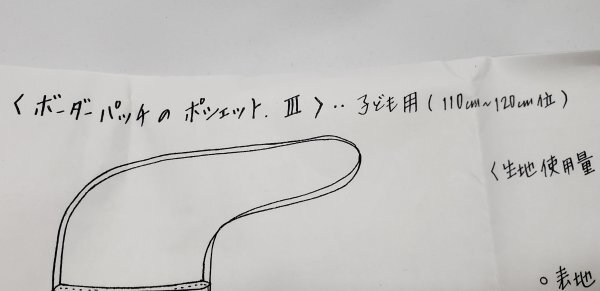 〈ボーダーパッチの ポシェット. Ⅲ〉‥子ども用(110cm~120cm位)
〈生地使用量
○表地